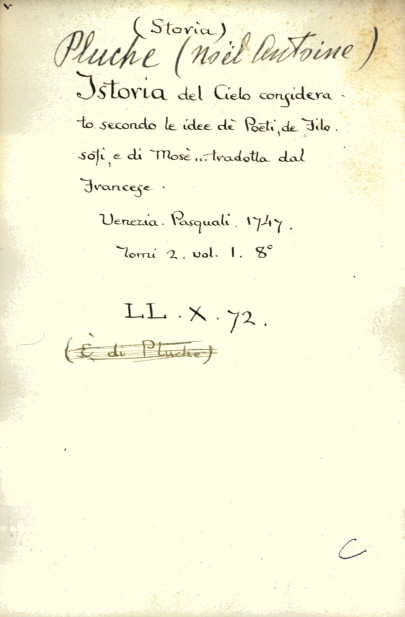 (Storia)
Pluche (Noël Antoine)
Istoria del Cielo considera-
to secondo le idee dè Poëti, de Filo-
sofi, e di Mosè... tradotta dal
Francese.
Venezia. Pasquali. 1747.
Tomi 2. vol. 1. 8°
LL. X. 72.
(È di Pluche)
C